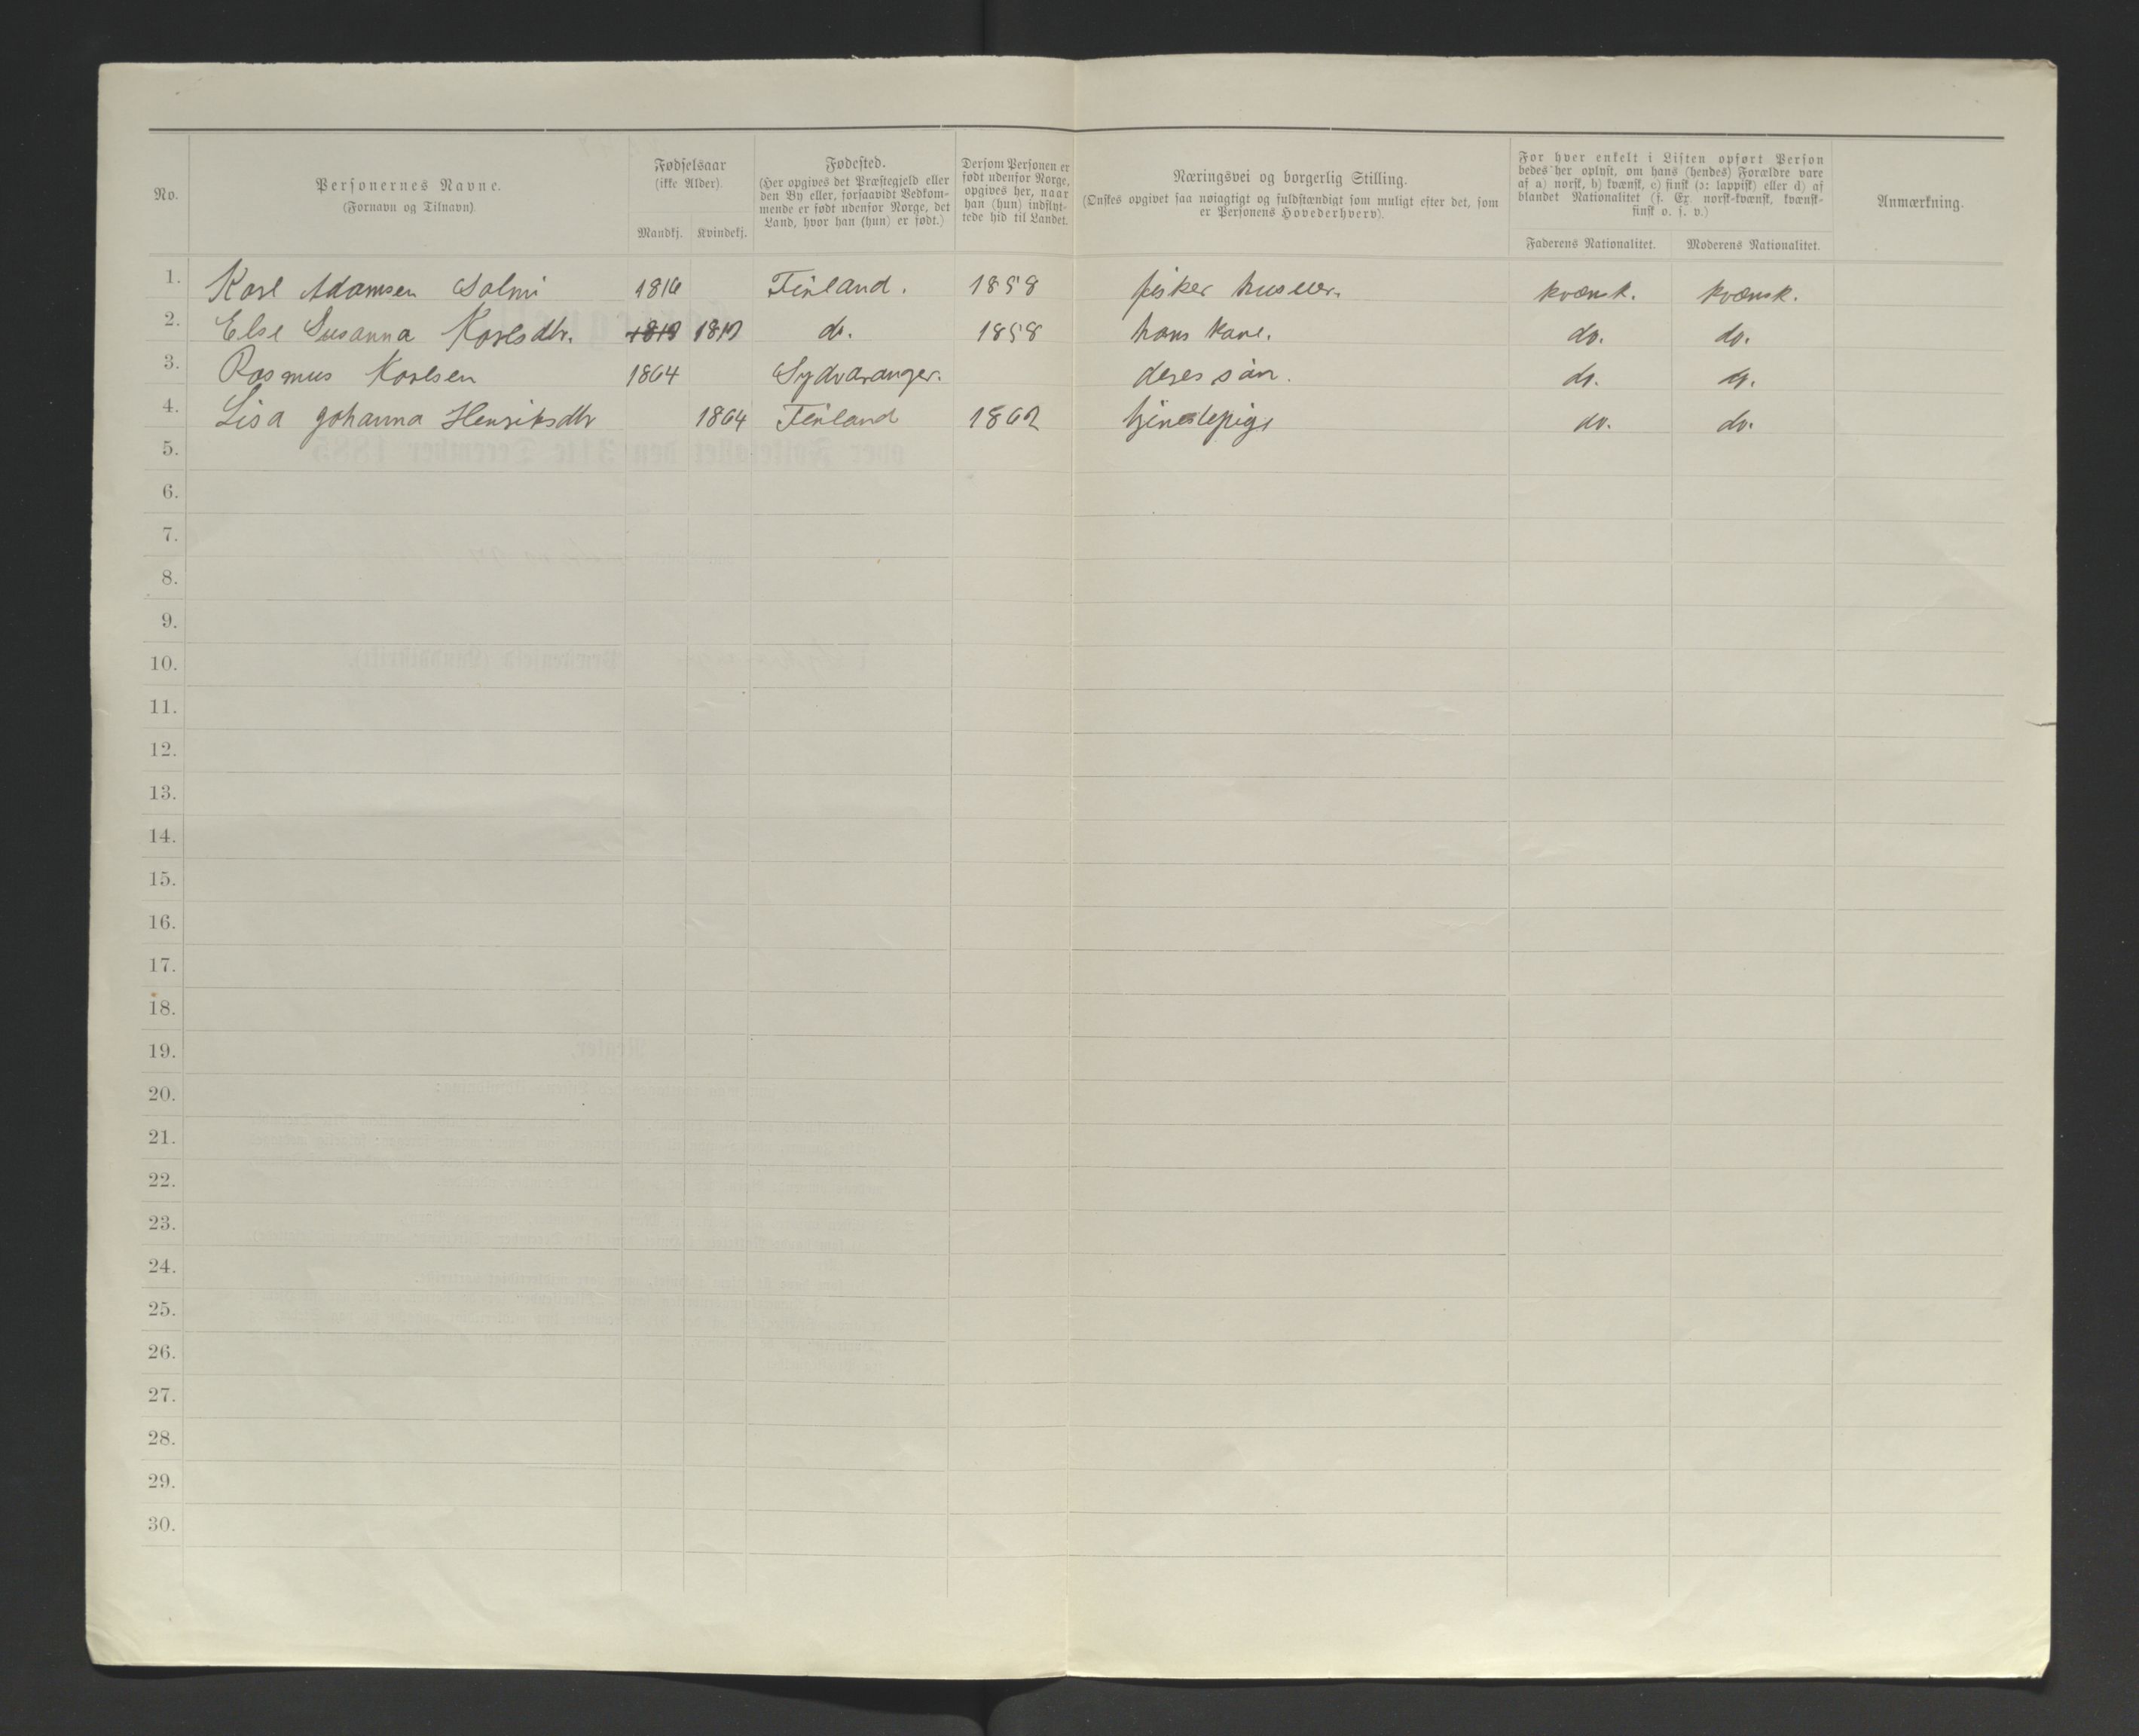 No.
Personernes Navne.
(Fornavn og Tilnavn)
Fødselsaar
(ikke Alder).
Mandkj. Kvindekj.
Fødested.
(Her opgives det Præstegjeld eller
den By eller, forsaavidt Vedkom-
mende er født udenfor Norge, det
Land, hvor han (hun) er født.)
Dersom Personen er
født udenfor Norge,
opgives her, naar
han (hun) indflyt-
tede hid til Landet.
Næringsvei og borgerlig Stilling.
(Ønskes opgivet saa nøiagtigt og fuldstændigt som muligt efter det, som
er Personens Hovederhverv).
For hver enkelt i Listen opført Person
bedes her oplyst, om hans (hendes) Forældre vare
af a) norsk, b) kvænsk, c) finsk (ɔ: lappisk) eller d) af
blandet Nationalitet (f. Ex. norsk-kvænsk, kvænsk-
finsk o. s. v.)
Faderens Nationalitet. Moderens Nationalitet.
Anmærkning.
1. Karl Adamsen Salmi 1816 Finland. 1858 fisker huseier. kvænsk. kvænsk.
2. Else Susanna Karlsdtr. do. 1858 hans kone. do. do.
3. Rasmus Karlsen 1864 Sydvaranger. deres sön. do. do.
4. Lisa Johanna Henriksdtr 1864 Finland tjenestepige do. do.
5.
6.
7.
8.
9.
10.
11.
12.
13.
14.
15.
16.
17.
18.
19.
20.
21.
22.
23.
24.
25.
26.
27.
28.
29.
30.